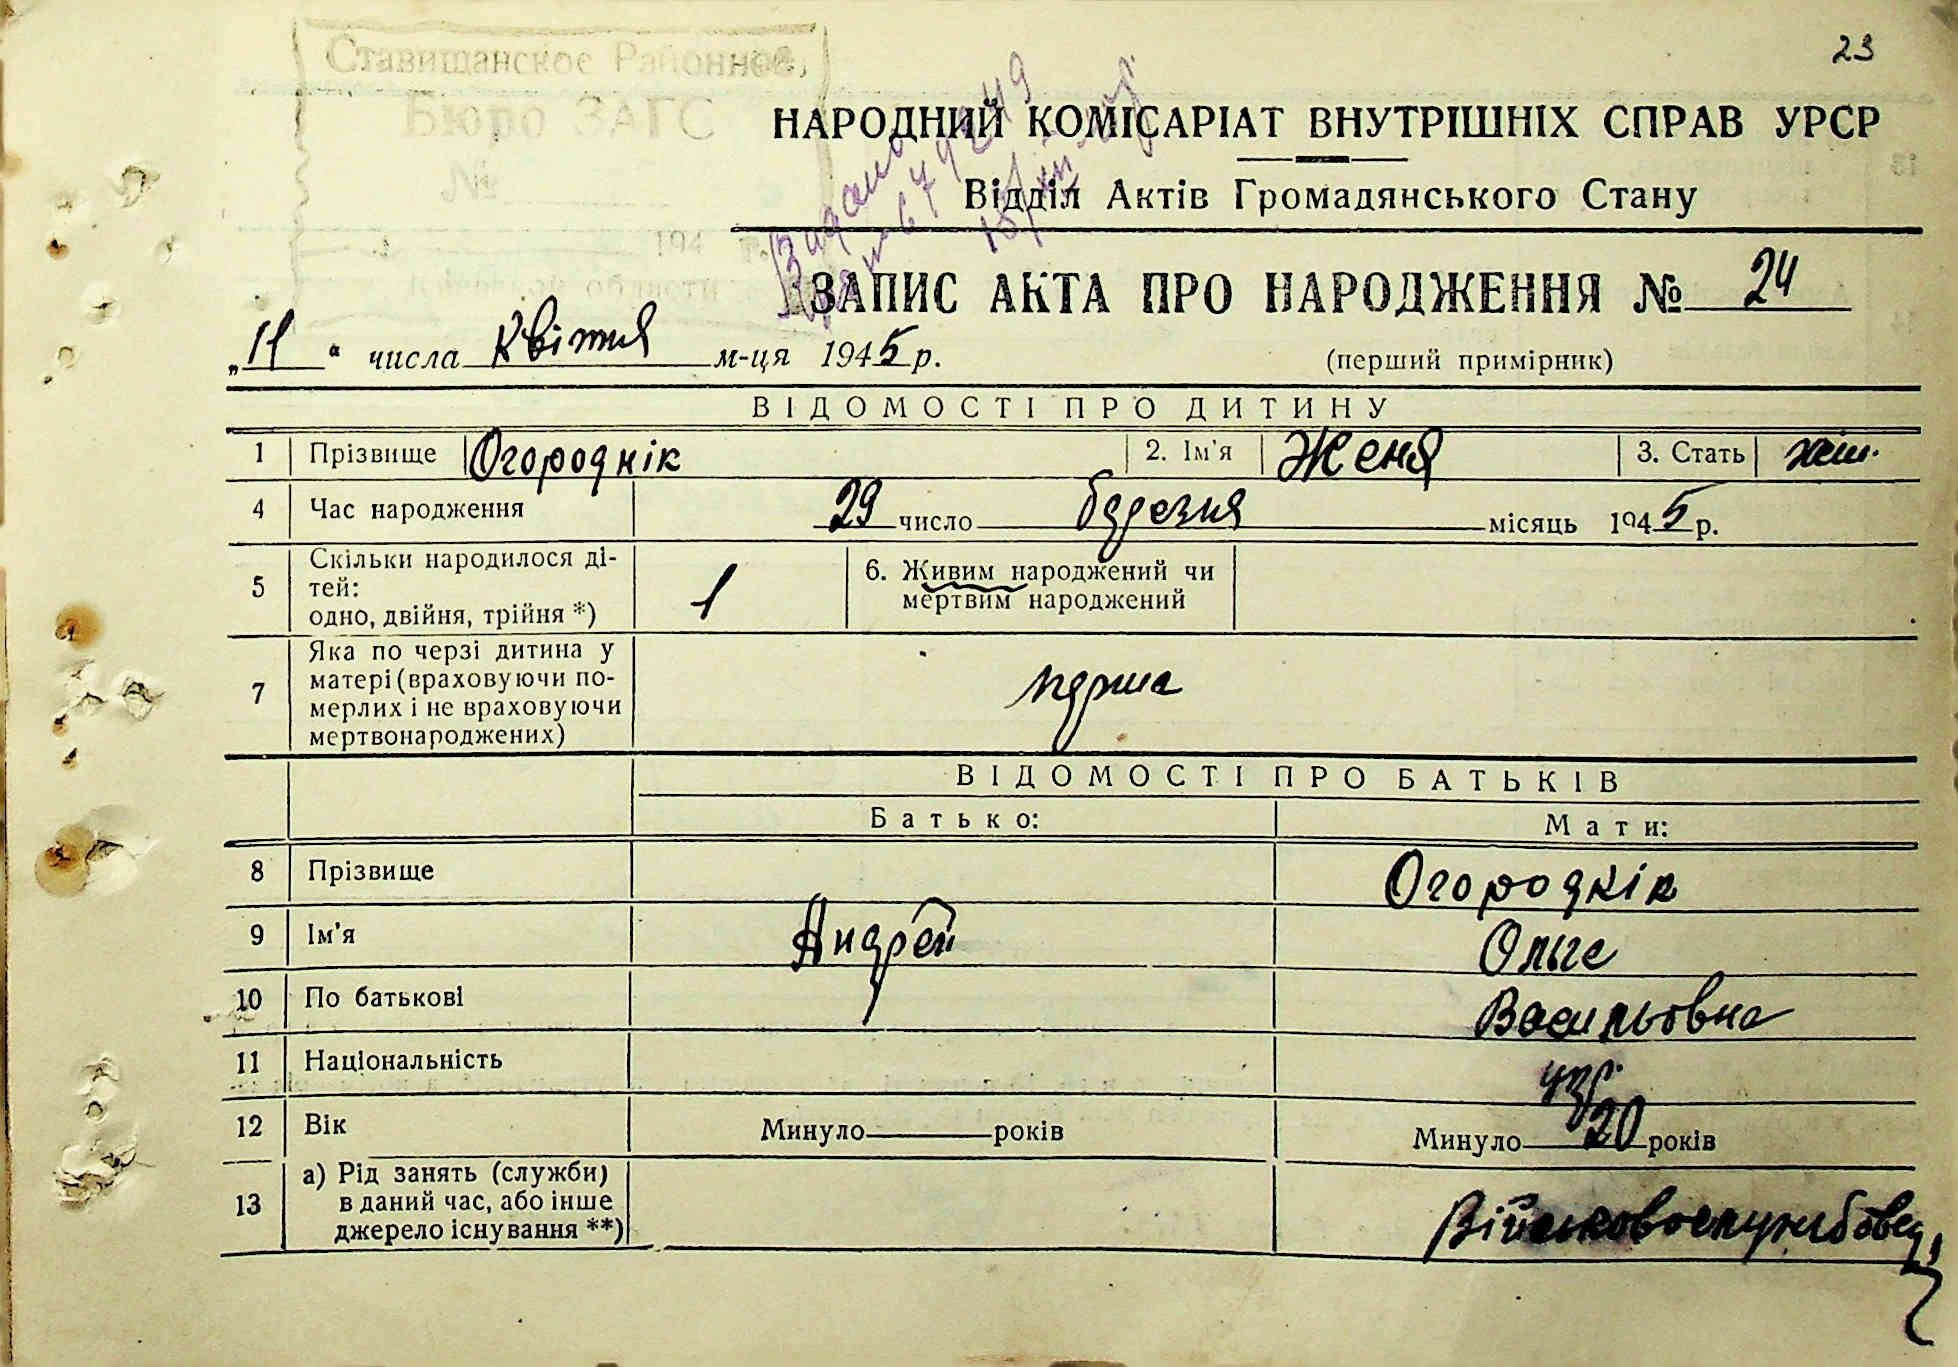 23
Ставищанское Районное
Бюро ЗАГС
№
194 г.
НАРОДНИЙ КОМІСАРІАТ ВНУТРІШНІХ СПРАВ УРСР
Відділ Актів Громадянського Стану
ЗАПИС АКТА ПРО НАРОДЖЕННЯ № 24
„11“ числа Квітня м-ця 1945 р. (перший примірник)
ВІДОМОСТІ ПРО ДИТИНУ
1 Прізвище Огороднік 2. Ім'я Женя 3. Стать жін.
4 Час народження 29 число березня місяць 1945 р.
5 Скільки народилося ді-
тей:
одно, двійня, трійня *) 1 6. Живим народжений чи
мертвим народжений
7 Яка по черзі дитина у
матері (враховуючи по-
мерлих і не враховуючи
мертвонароджених) перша
ВІДОМОСТІ ПРО БАТЬКІВ
Батько: Мати:
8 Прізвище Огороднік
9 Ім'я Андрей Ольга
10 По батькові Васильовна
11 Національність укр.
12 Вік Минуло років Минуло 20 років
13 а) Рід занять (служби)
в даний час, або інше
джерело існування **) Військовослужбовец